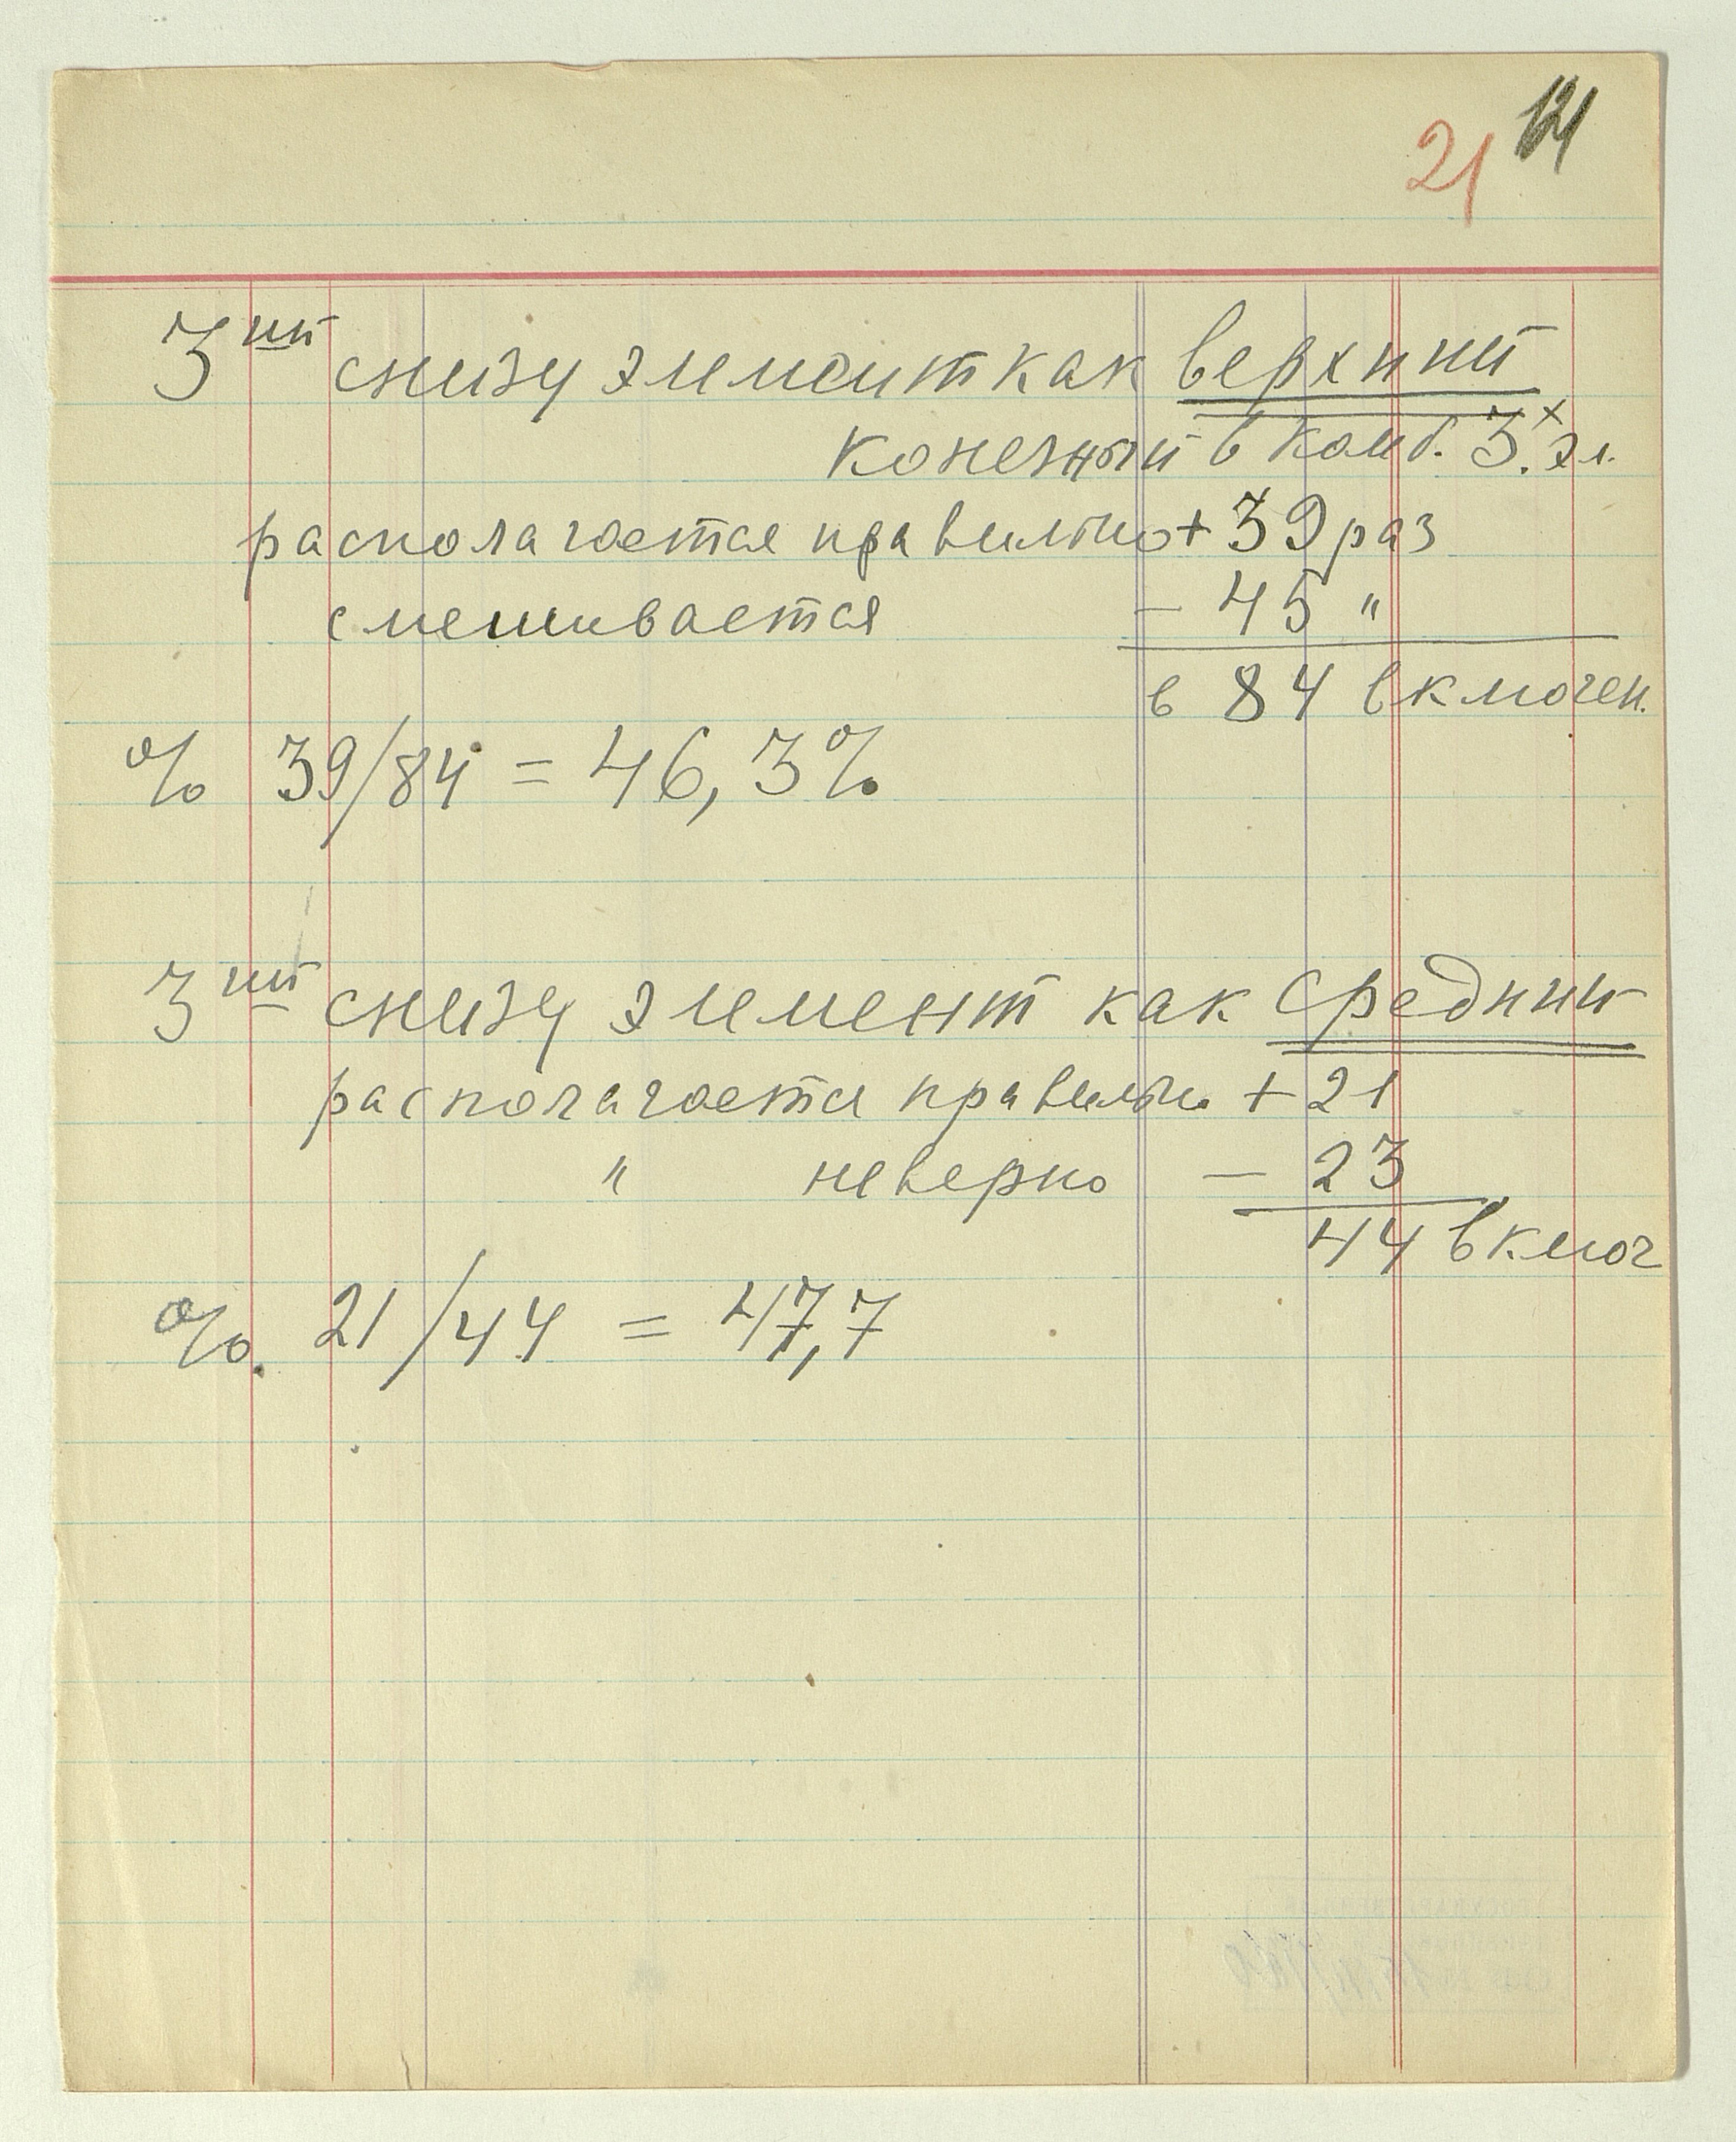 21 121
3ий снизу элемент как верхний
конечный в комб. 3.х эл.
располагается правильно + 39 раз
смешивается — 45 "
в 84 включен.
% 39/84 = 46,3%
3ий снизу элемент как средний
располагается правильно + 21
" неверно — 23
44 включ
%. 21/44 = 47,7